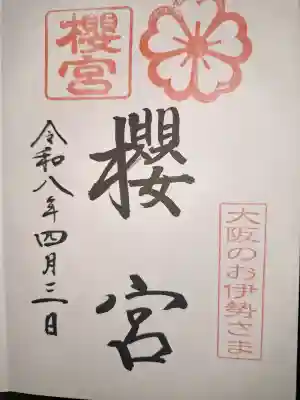 櫻宮
櫻宮
大阪のお伊勢さま
令和八年四月二日